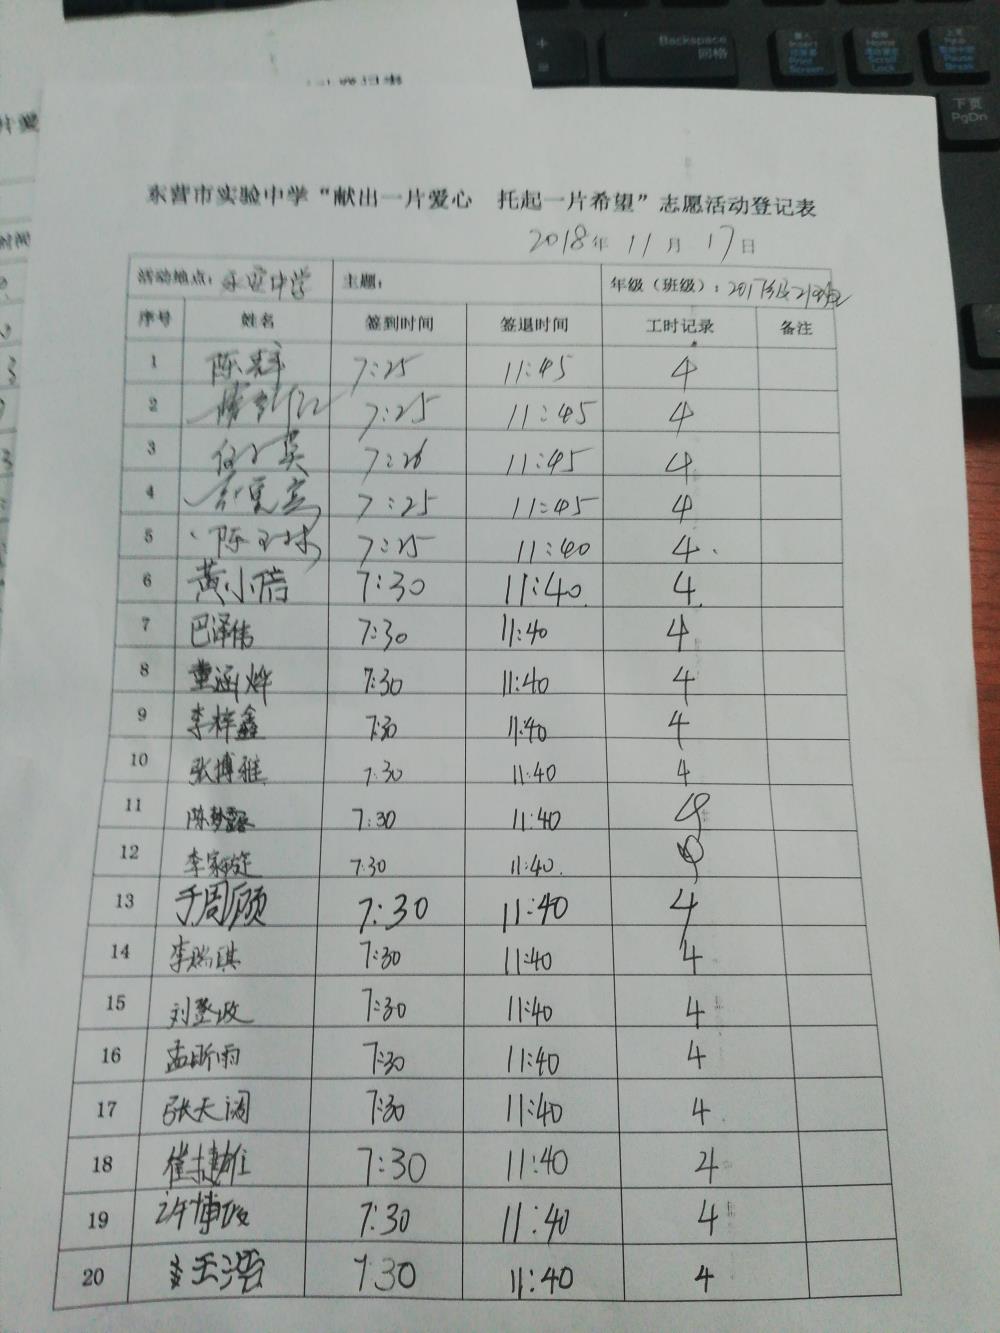 Backspace
回格
Insert
Print
Screen
Home
Scroll
Lock
Pause
Break
下页
PgDn
片爱
时间
东营市实验中学“献出一片爱心 托起一片希望”志愿活动登记表
2018年 11月 17日
活动地点： 中学 主题： 年级（班级）：2017级
序号 姓名 签到时间 签退时间 工时记录 备注
1 陈 7:25 11:45 4
2 7:25 11:45 4
3 7:26 11:45 4
4 7:25 11:45 4
5 陈玉林 7:25 11:40 4
6 黄小倩 7:30 11:40 4
7 巴泽伟 7:30 11:40 4
8 董涵烨 7:30 11:40 4
9 李梓鑫 7:30 11:40 4
10 张博雅 7:30 11:40 4
11 陈梦露 7:30 11:40 4
12 李家旋 7:30 11:40 4
13 于周顾 7:30 11:40 4
14 李瑞琪 7:30 11:40 4
15 刘登政 7:30 11:40 4
16 孟昕雨 7:30 11:40 4
17 张天阔 7:30 11:40 4
18 崔捷雄 7:30 11:40 4
19 许博俊 7:30 11:40 4
20 王浩 7:30 11:40 4